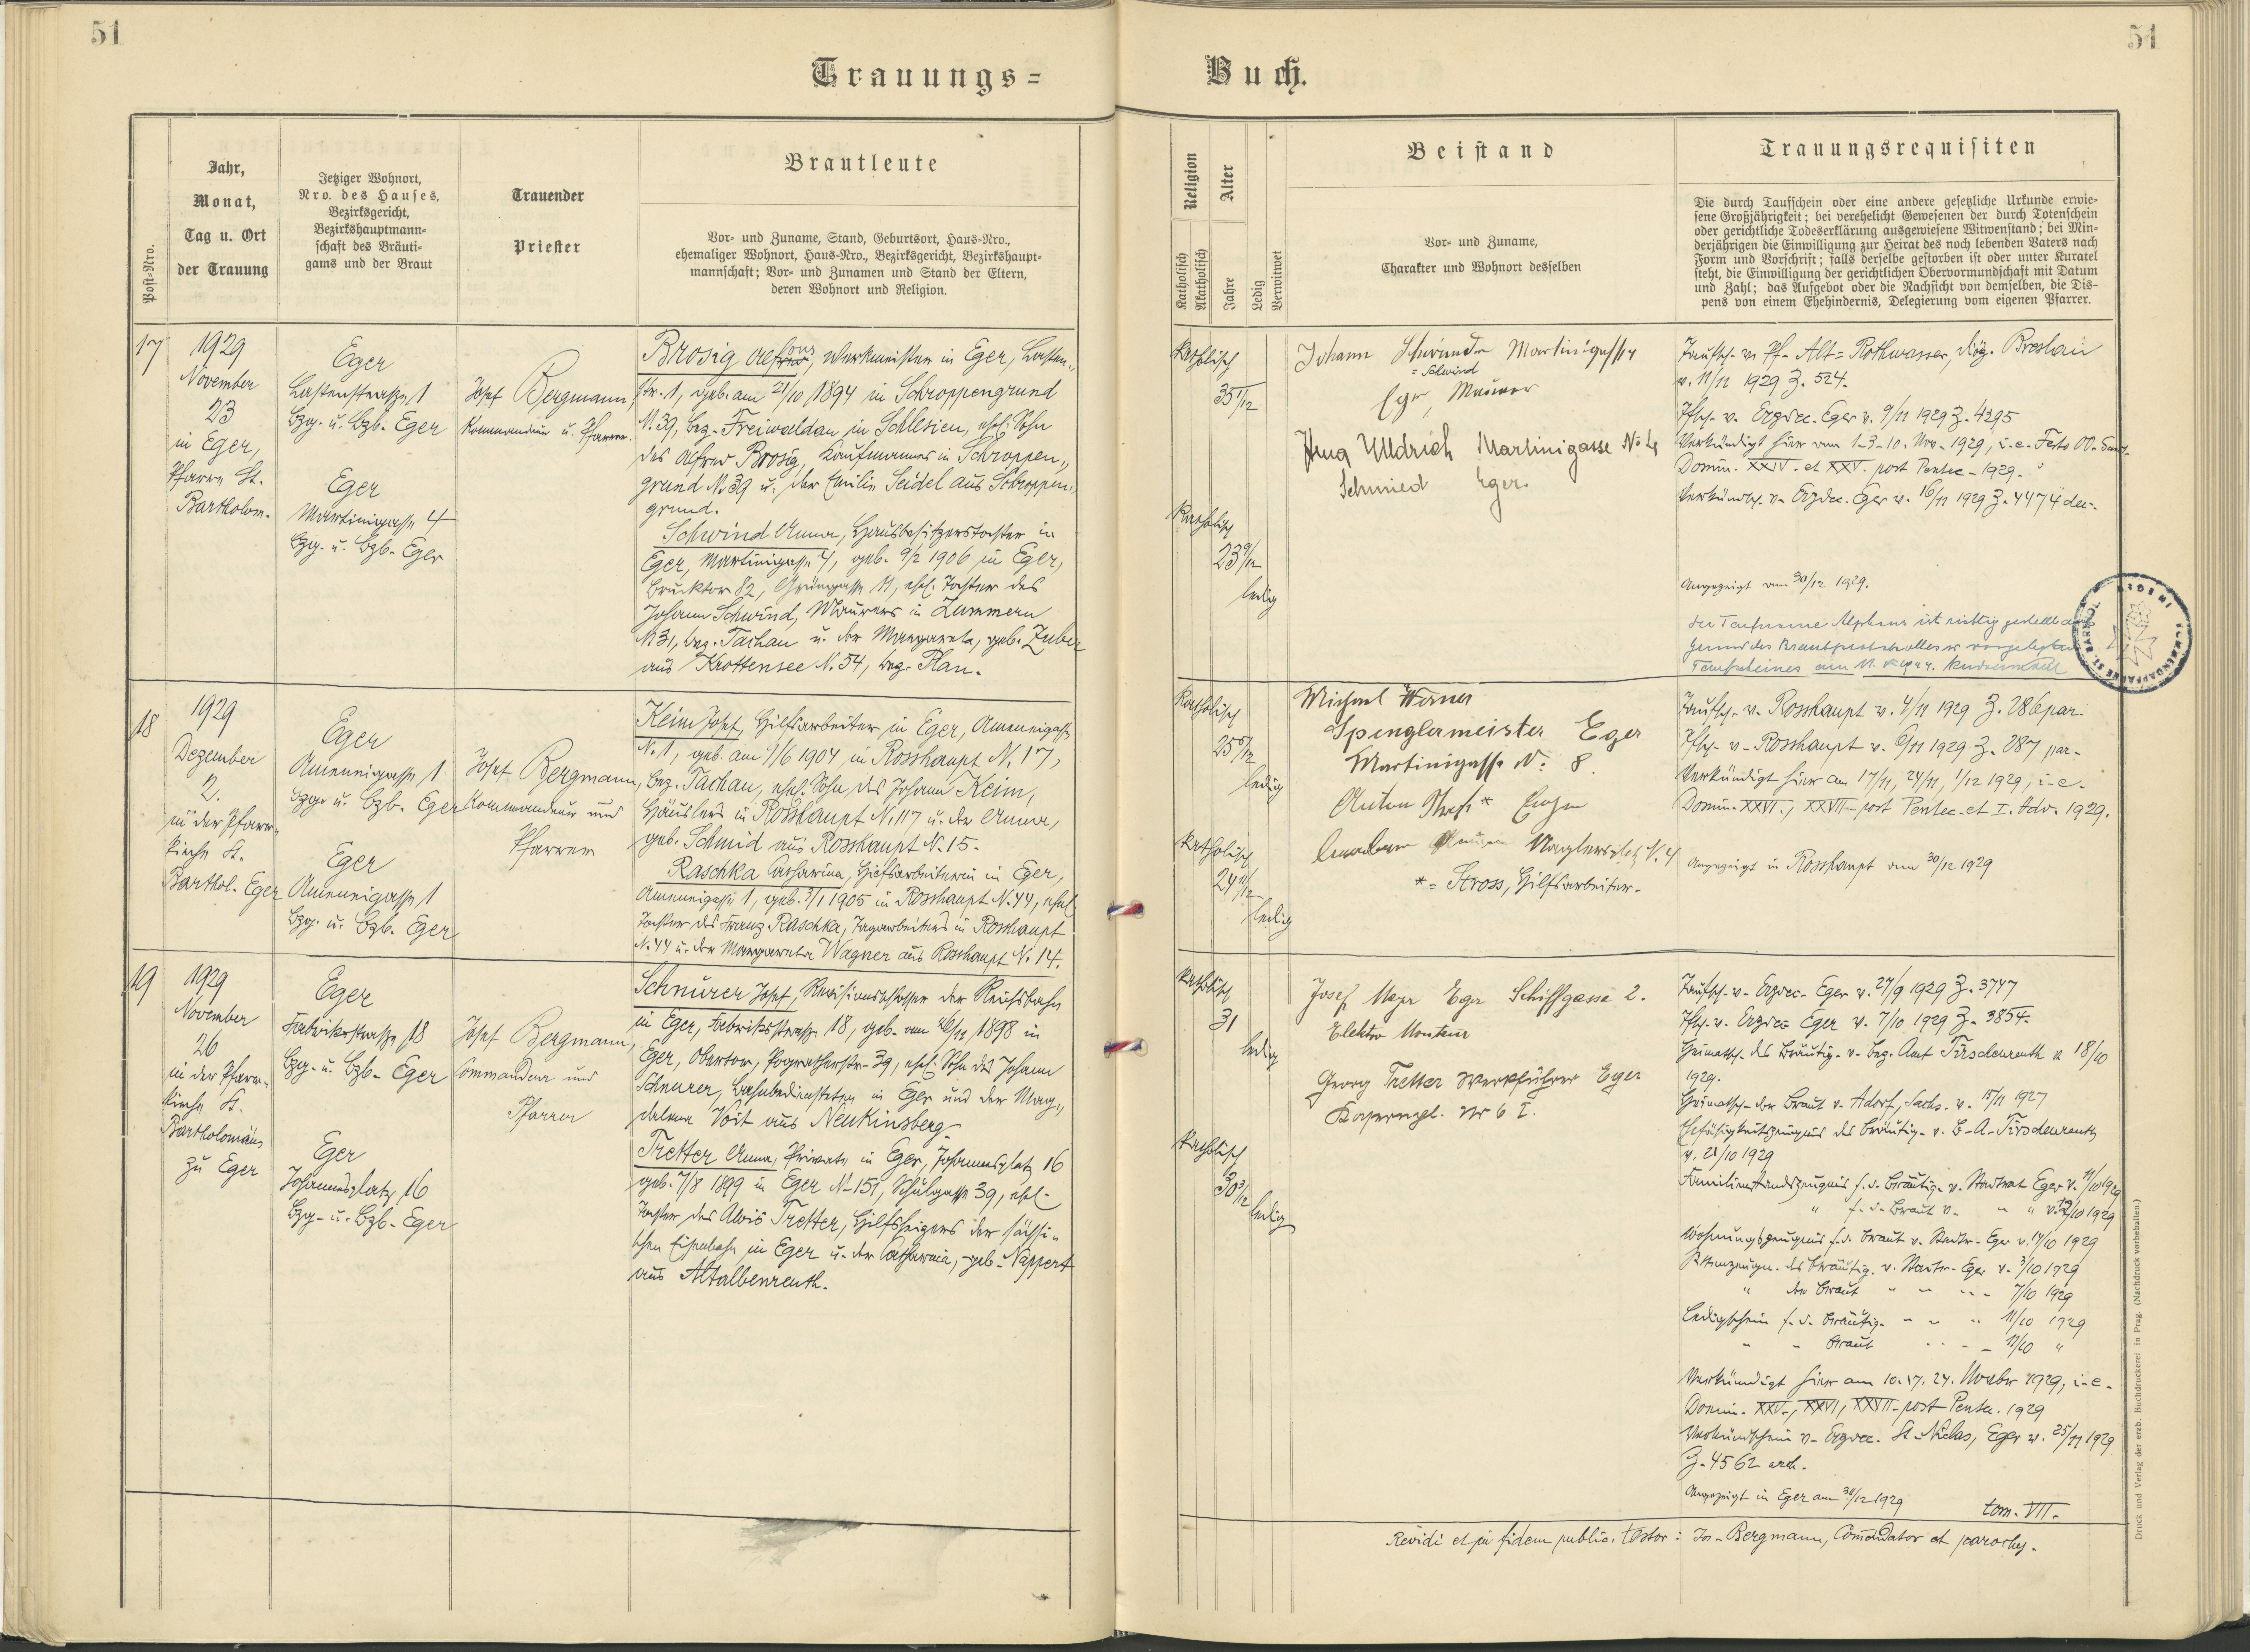 51
51
Trauungs=
Buch.
Post=Nro.
Jahr,
Monat,
Tag u. Ort
der Trauung
Jetziger Wohnort,
Nro. des Hauses,
Bezirksgericht,
Bezirkshauptmann=
schaft des Bräuti=
gams und der Braut
Trauender
Priester
Brautleute
Vor= und Zuname, Stand, Geburtsort, Haus=Nro.,
ehemaliger Wohnort, Haus=Nro., Bezirksgericht, Bezirkshaupt=
mannschaft; Vor= und Zunamen und Stand der Eltern,
deren Wohnort und Religion.
Religion
Katholisch
Akatholisch
Alter
Jahre
Ledig
Verwitwet
Beistand
Vor= und Zuname,
Charakter und Wohnort desselben
Trauungsrequisiten
Die durch Taufschein oder eine andere gesetzliche Urkunde erwie=
sene Großjährigkeit; bei verehelicht Gewesenen der durch Totenschein
oder gerichtliche Todeserklärung ausgewiesene Witwenstand; bei Min=
derjährigen die Einwilligung zur Heirat des noch lebenden Vaters nach
Form und Vorschrift; falls derselbe gestorben ist oder unter Kuratel
steht, die Einwilligung der gerichtlichen Obervormundschaft mit Datum
und Zahl; das Aufgebot oder die Nachsicht von demselben, die Dis=
pens von einem Ehehindernis, Delegierung vom eigenen Pfarrer.
17
1929
November
23
in Eger,
Pfarre St.
Bartholom.
Eger
Lastenstraße 1
Bzg. u. Bzb. Eger
Eger
Martinigasse 4
Bzg. u. Bzb. Eger
Josef Bergmann,
Kommandeur u. Pfarrer.
Brosig Alfons, Werkmeister in Eger, Lasten„
str. 1, geb. am 21/10 1894 in Schroppengrund
N. 39, Bez. Freiwaldau in Schlesien, ehel. Sohn
des Alfred Brosig, Kaufmannes in Schroppen„
grund N. 39 u. der Emilie Seidel aus Schroppen„
grund.
Schwind Anna, Hausbesitzerstochter in
Eger, Martinigasse 4, geb. 9/2 1906 in Eger,
Brucktor 82, Grüngasse 11, ehel. Tochter des
Johann Schwind, Maurers in Zummern
N 31, Bez. Tachau u. der Margareta, geb. Zuber
aus Krottensee N. 54, Bez. Plan.
Katholisch
35 1/12
Katholisch
23 9/12
ledig
Johann Schwind Martinigasse 4
= Schwind
Eger, Maurer
Hug Ulldrich Martinigasse No 4
Schmied Eger.
Taufsch. v. Pf. Alt=Rothwasser, Diöz. Breslau
v. 11/11 1929 Z. 524.
Pfsch. v. Erzdec. Eger v. 9/11 1929 Z. 4395
Verkündigt hier am 1-3-10. Nov. 1929, i. e. Festo OO. Sanct.
Domin. XXIV. et XXV. post Pentec. 1929.
Verkündsch. v. Erzdec. Eger v. 16/11 1929 Z. 4474 dec.
Angezeigt am 30/12 1929.
Der Taufname Alphons ist richtig gestellt auf
Grund des Brautprotokolles u. vorgelegten
Taufscheines am
18
1929
Dezember
2.
in der Pfarr„
kirche St.
Barthol. Eger
Eger
Amenneigasse 1
Bzg. u. Bzb. Eger
Eger
Amenneigasse 1
Bzg. u. Bzb. Eger
Josef Bergmann,
Kommandeur und
Pfarrer
Keim Josef, Hilfsarbeiter in Eger, Amenneigasse
N. 1, geb. am 9/6 1904 in Rosshaupt N. 17,
Bez. Tachau, ehel. Sohn des Johann Keim,
Häuslers in Rosshaupt N. 117 u. der Anna,
geb. Schmid aus Rosshaupt N. 15.
Raschka Catharina, Hilfsarbeiterin in Eger,
Amenneigasse 1, geb. 3/1 1905 in Rosshaupt N. 44, ehel.
Tochter des Franz Raschka, Tagarbeiters in Rosshaupt
N. 44 u. der Margareta Wagner aus Rosshaupt N. 14.
Katholisch
25 5/12
ledig
Katholisch
24 11/12
ledig
Michael Werner
Spenglermeister Eger
Martinigasse No: 8.
Anton * Eger
*= Stross, Hilfsarbeiter.
Taufsch. v. Rosshaupt v. 4/11 1929 Z. 286 par.
Pfsch. v. Rosshaupt v. 6/11 1929 Z. 287 par.
Verkündigt hier am 17/11, 24/11, 1/12 1929, i. e.
Domin. XXVI., XXVII. post Pentec. et I. Adv. 1929.
Angezeigt in Rosshaupt am 30/12 1929
19
1929
November
26
in der Pfarr„
kirche St.
Bartholomäus
zu Eger
Eger
Fabriksstraße 18
Bzg. u. Bzb. Eger
Eger
Johannesplatz 16
Bzg. u. Bzb. Eger
Josef Bergmann,
Commandeur und
Pfarrer
Schnurer Josef, Revisionsschlosser der Reichsbahn
in Eger, Fabriksstraße 18, geb. am 26/11 1898 in
Eger, Obertor, Pogratherstr. 39, ehel. Sohn des Johann
Schnurer, Bahnbediensteten in Eger und der Mag„
dalena Voit aus Neukinsberg.
Tretter Anna, Private in Eger, Johannesplatz 16
geb. 7/8 1899 in Eger N. 151, Schulgasse 39, ehel.
Tochter des Alois Tretter, Hilfsheizers der sächsi„
schen Eisenbahn in Eger u. der Catharina, geb. Nappert
aus Altalbenreuth.
Katholisch
31
ledig
Katholisch
30 3/12
ledig
Josef Mayr Eger Schiffgasse 2.
Elektro Monteur
Georg Tretter Werkführer Eger
Taufsch. v. Erzdec. Eger v. 27/9 1929 Z. 3747
Pfsch. v. Erzdec. Eger v. 7/10 1929 Z. 3854.
Heimatsch. des Bräutig. v. Bez. Amt Tirschenreuth v. 18/10
1929.
Heimatsch. der Braut v. Adorf, Sachs. v. 15/11 1927
Ehefähigkeitszeugnis des Bräutig. v. B. A. Tirschenreuth
v. 21/10 1929
Familienstandszeugnis f. d. Bräutig. v. Stadtrat Eger v. 11/10 1929
" f. d. Braut v. " " v. 12/10 1929
Wohnungszeugnis f. d. Braut v. Stadtr. Eger v. 14/10 1929
Sittenzeugn. des Bräutig. v. Stadtr. Eger v. 3/10 1929
" der Braut " " " 7/10 1929
Ledigschein f. d. Bräutig. " " " 11/10 1929
" " Braut " " " 11/10 "
Verkündigt hier am 10. 17. 24. November 1929, i. e.
Domin. XXV., XXVI, XXVII. post Pentec. 1929
Verkündschein v. Erzdec. St. Niclas, Eger v. 25/11 1929
Z. 4562 arch.
Angezeigt in Eger am 30/12 1929
tom. VII.
Revidi et in fidem public. testor: Jos. Bergmann, Comendator et parochus.
Druck und Verlag der erzb. Buchdruckerei in Prag. (Nachdruck vorbehalten.)